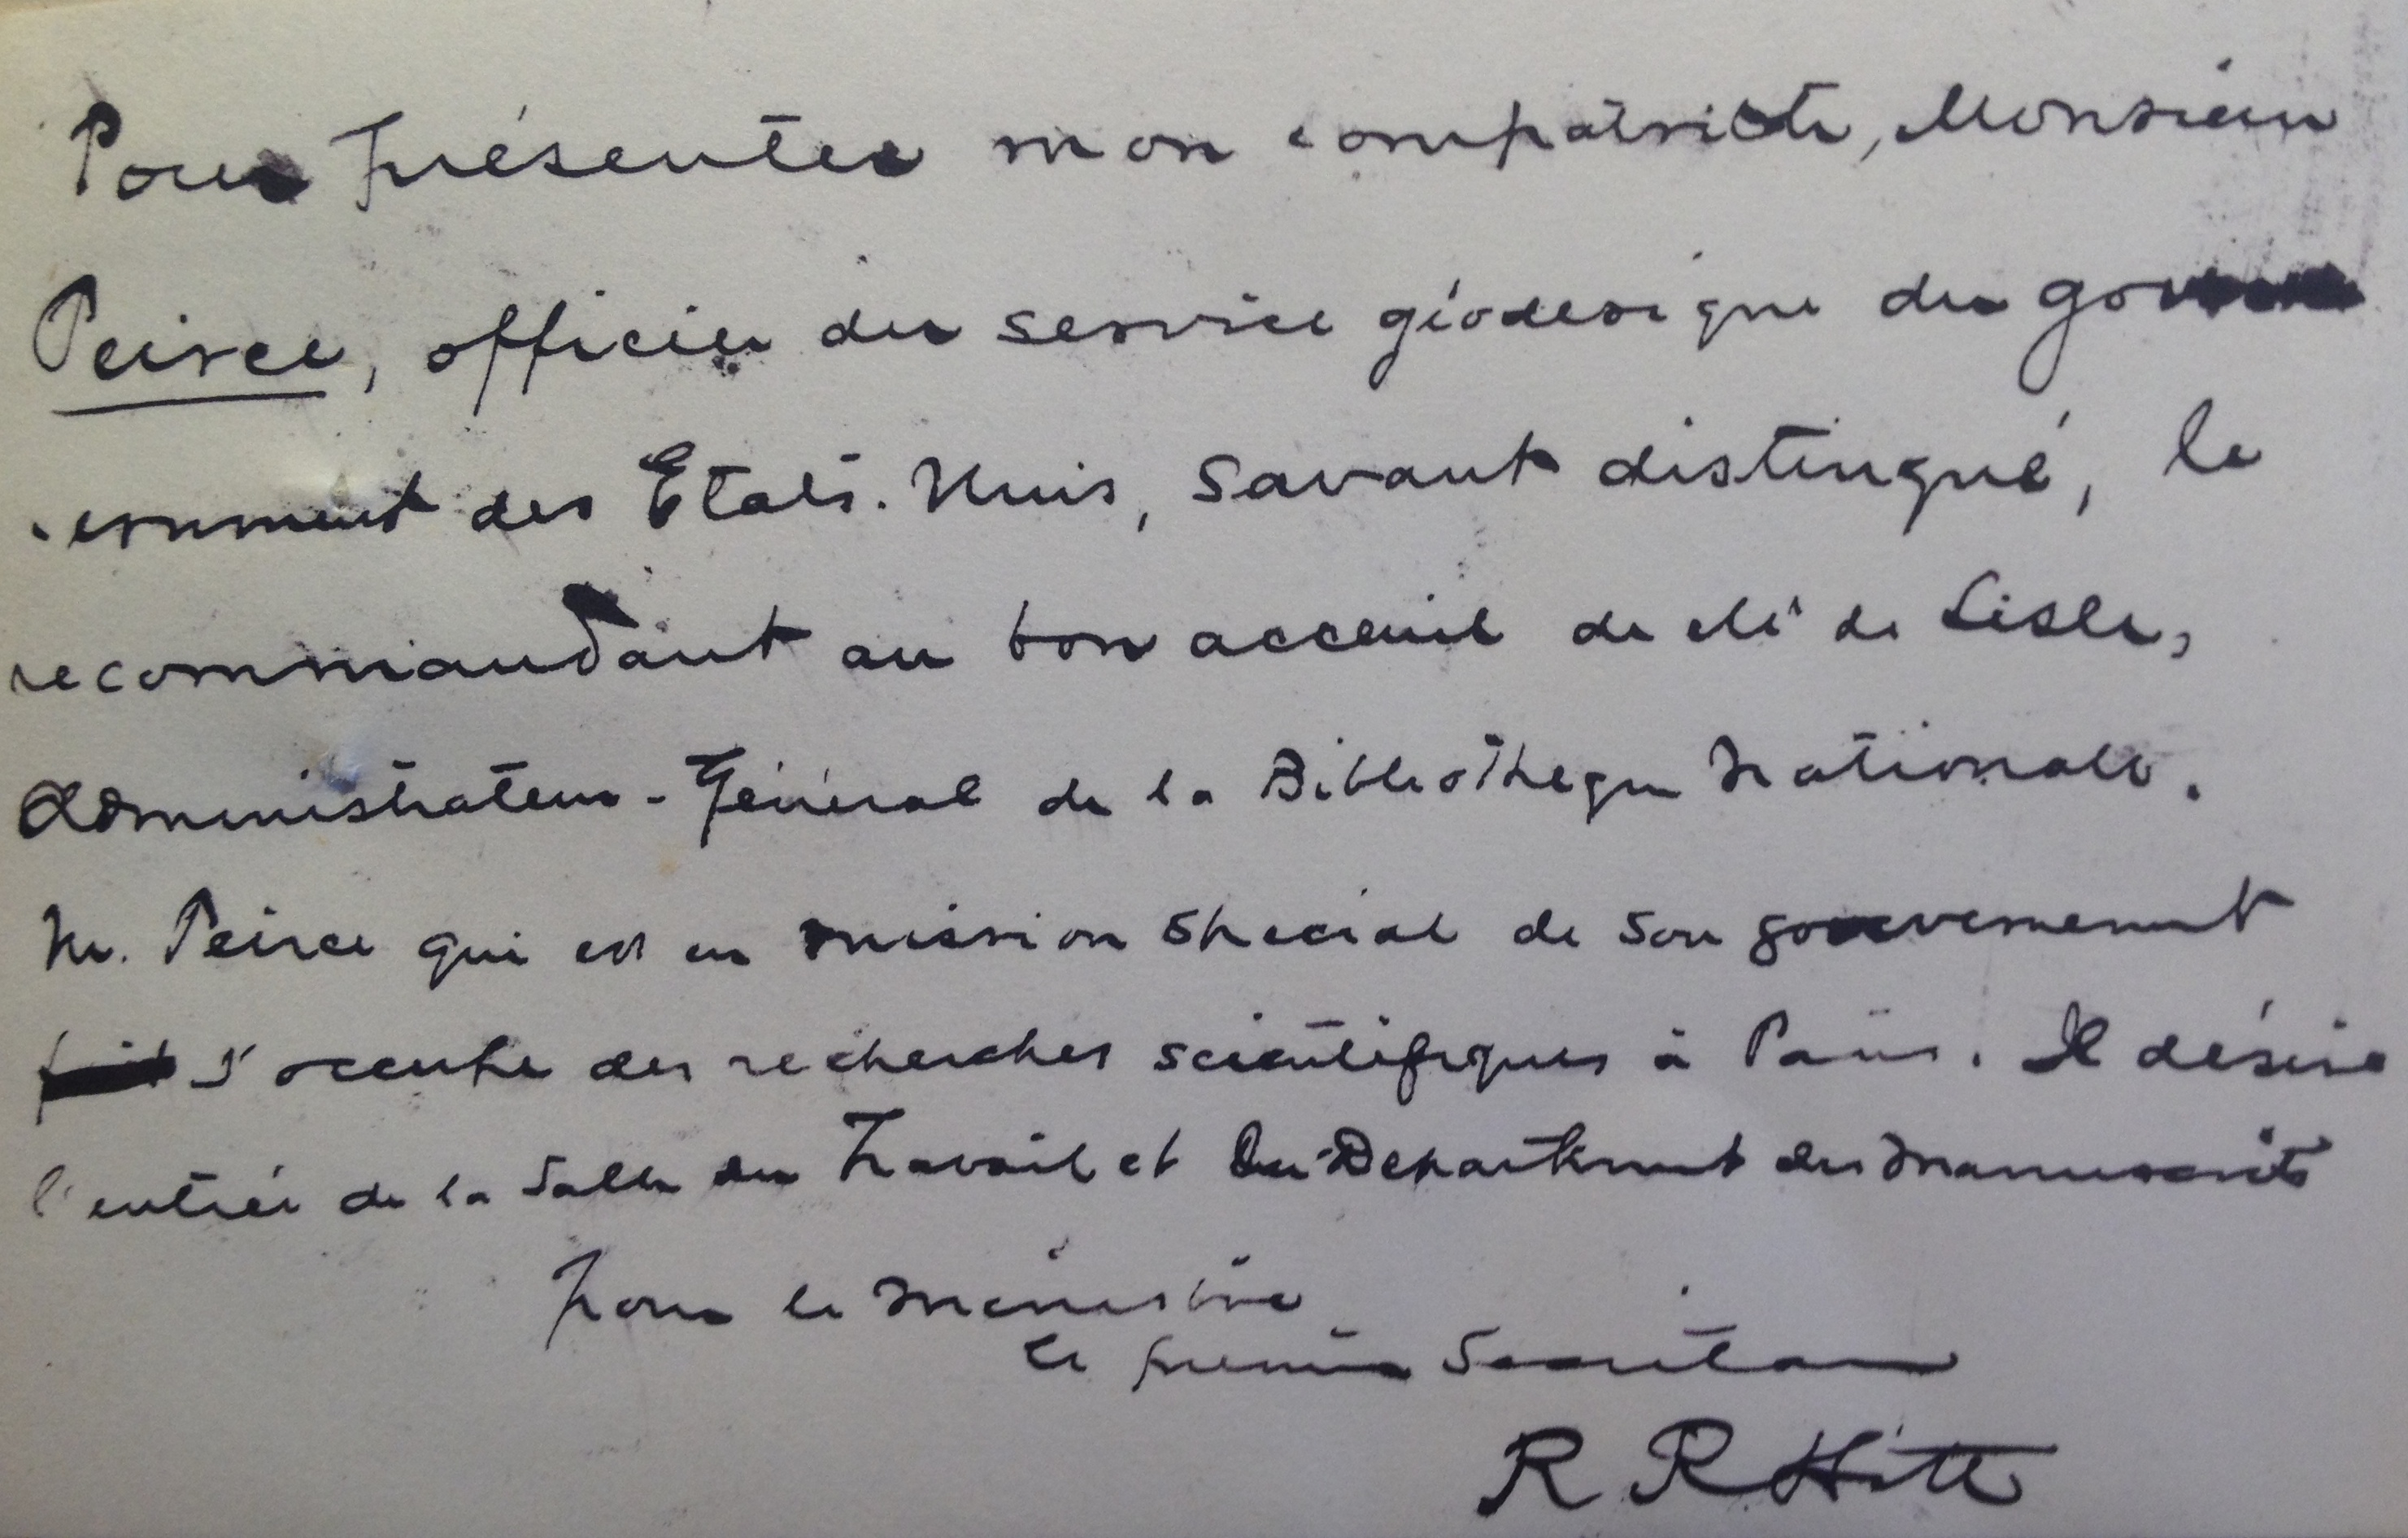 Pour présenter mon compatriote, Monsieur
Peirce, officier du service géodesique du gou
vernment des Etats-Unis, savant distingué, le
recommandant au bon acceuil de M. de Lisle,
Administrateur-Général de la Bibliotheque Nationale.
M. Peirce qui est en mission special de son gouvernement
s'occupe des recherches scientifiques à Paris. Il désire
l'entrée de la Salle du Travail et du Department des Manuscrits
Pour le Ministre
le premier Secretaire
R R Hitt